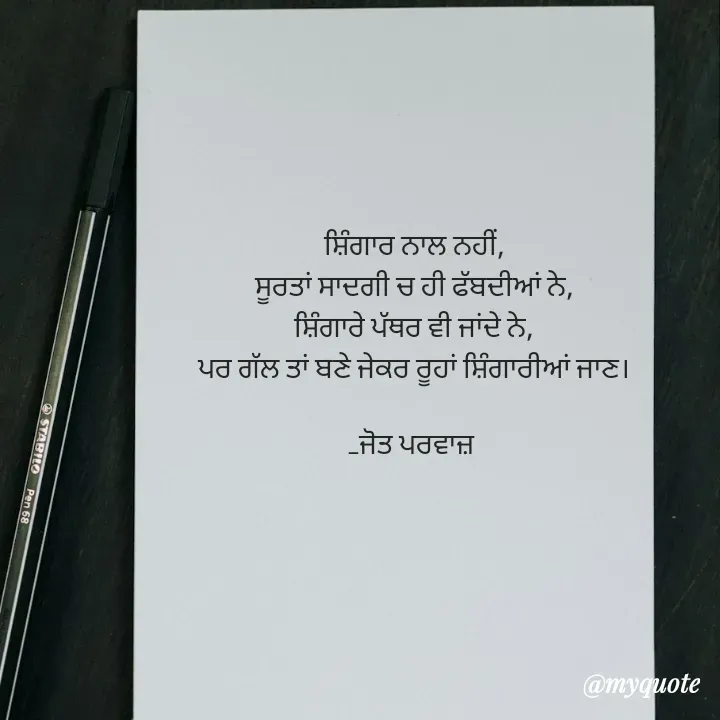 ਸ਼ਿੰਗਾਰ ਨਾਲ ਨਹੀਂ,
ਸੂਰਤਾਂ ਸਾਦਗੀ ਚ ਹੀ ਫੱਬਦੀਆਂ ਨੇ,
ਸ਼ਿੰਗਾਰੇ ਪੱਥਰ ਵੀ ਜਾਂਦੇ ਨੇ,
ਪਰ ਗੱਲ ਤਾਂ ਬਣੇ ਜੇਕਰ ਰੂਹਾਂ ਸ਼ਿੰਗਾਰੀਆਂ ਜਾਣ।
_ਜੋਤ ਪਰਵਾਜ਼
STABILO Pen 68
@myquote